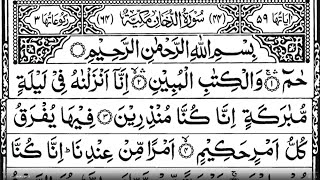 اٰیاتها ٥٩ (٤٤) سُوْرَةُ الدُّخَانِ مَكِّیَّةٌ (٦٤) رکوعاتها ٣
بِسْمِ اللّٰهِ الرَّحْمٰنِ الرَّحِیْمِ
حٰمٓ ۝١ وَالْكِتٰبِ الْمُبِیْنِ ۝٢ اِنَّاۤ اَنْزَلْنٰهُ فِیْ لَیْلَةٍ
مُّبٰرَكَةٍ اِنَّا كُنَّا مُنْذِرِیْنَ ۝٣ فِیْهَا یُفْرَقُ
كُلُّ اَمْرٍ حَكِیْمٍ ۝٤ اَمْرًا مِّنْ عِنْدِنَا ؕ اِنَّا كُنَّا